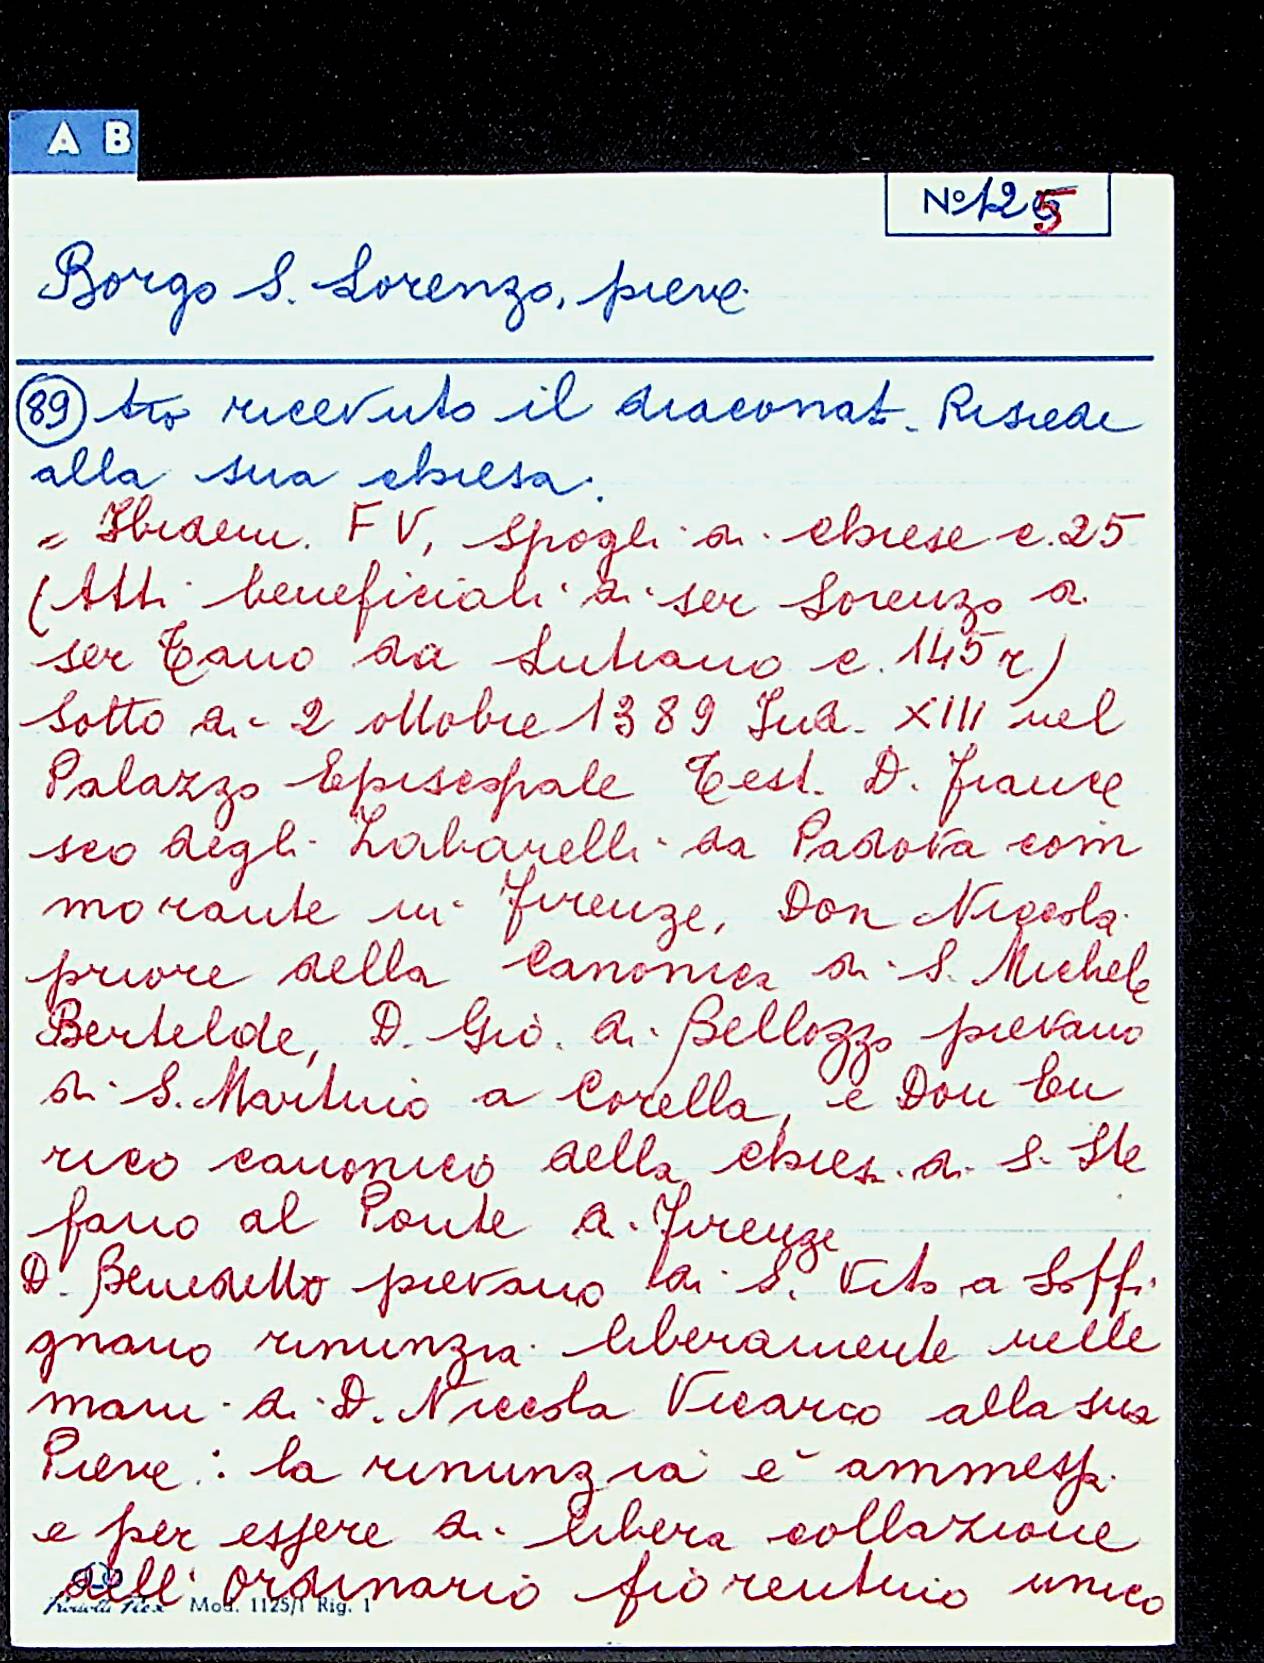 A B
N° 125
Borgo S. Lorenzo, pieve
89 tto ricevuto il diaconat. Risiede
alla sua chiesa.
= Ibidem. FV, spogli di chiese c. 25
(Atti beneficiali di ser Lorenzo di
ser Tano da Lutiano c. 145 r)
Sotto di 2 ottobre 1389 Ind. XIII nel
Palazzo Episcopale Test. D. France
sco degli Zabarelli da Padova com
morante in Firenze, Don Niccola
priore della Canonica di S. Michele
Bertelde, D. Gio. di Bellozzo pievano
di S. Martino a Corella, e Don En
rico canonico della chiesa di S. Ste
fano al Ponte di Firenze
D. Benedetto pievano di S. Vito a Soffi
gnano rinunzia liberamente nelle
mani di D. Niccola Vicario alla sua
Pieve: la rinunzia è ammessa
e per essere di libera collazione
dell'Ordinario fiorentino unico
Mod. 1125/1 Rig. 1